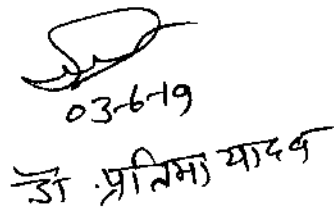 03-6-19
डा. प्रतिमा यादव